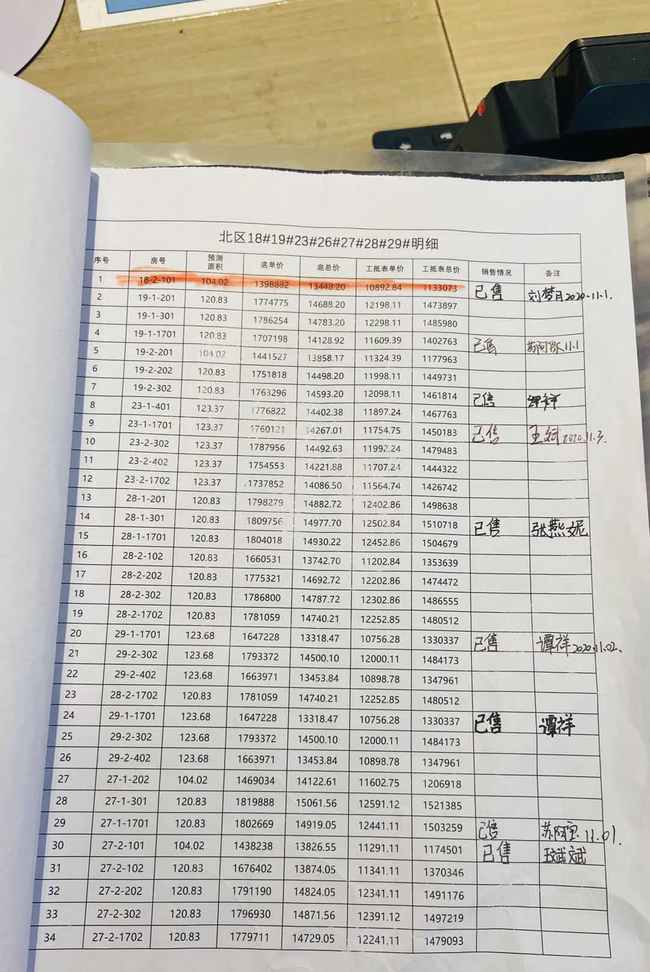 北区18#19#23#26#27#28#29#明细
序号 房号 预测面积 底单价 底总价 工抵表单价 工抵表总价 销售情况 备注
1 18-2-101 104.02 1398882 13448.20 10892.84 1133073 已售 2020.11.1.
2 19-1-201 120.83 1774775 14688.20 12198.11 1473897
3 19-1-301 120.83 1786254 14783.20 12298.11 1485980
4 19-1-1701 120.83 1707198 14128.92 11609.39 1402763 已售 11.1
5 19-2-201 104.02 1441527 13858.17 11324.39 1177963
6 19-2-202 120.83 1751818 14498.20 11998.11 1449731
7 19-2-302 120.83 1763296 14593.20 12098.11 1461814 已售
8 23-1-401 123.37 1776822 14402.38 11897.24 1467763
9 23-1-1701 123.37 1760121 14267.01 11754.75 1450183 已售 王斌2020.11.3.
10 23-2-302 123.37 1787956 14492.63 11992.24 1479483
11 23-2-402 123.37 1754553 14221.88 11707.24 1444322
12 23-2-1702 123.37 1737852 14086.50 11564.74 1426742
13 28-1-201 120.83 1798279 14882.72 12402.86 1498638
14 28-1-301 120.83 1809756 14977.70 12502.84 1510718 已售 张燕妮
15 28-1-1701 120.83 1804018 14930.22 12452.86 1504679
16 28-2-102 120.83 1660531 13742.70 11202.84 1353639
17 28-2-202 120.83 1775321 14692.72 12202.86 1474472
18 28-2-302 120.83 1786800 14787.72 12302.86 1486555
19 28-2-1702 120.83 1781059 14740.21 12252.85 1480512
20 29-1-1701 123.68 1647228 13318.47 10756.28 1330337 已售 谭祥2020.11.02.
21 29-2-302 123.68 1793372 14500.10 12000.11 1484173
22 29-2-402 123.68 1663971 13453.84 10898.78 1347961
23 28-2-1702 120.83 1781059 14740.21 12252.85 1480512
24 29-1-1701 123.68 1647228 13318.47 10756.28 1330337 已售 谭祥
25 29-2-302 123.68 1793372 14500.10 12000.11 1484173
26 29-2-402 123.68 1663971 13453.84 10898.78 1347961
27 27-1-202 104.02 1469034 14122.61 11602.75 1206918
28 27-1-301 120.83 1819888 15061.56 12591.12 1521385
29 27-1-1701 120.83 1802669 14919.05 12441.11 1503259 已售 11.01.
30 27-2-101 104.02 1438238 13826.55 11291.11 1174501 已售
31 27-2-102 120.83 1676402 13874.05 11341.11 1370346
32 27-2-202 120.83 1791190 14824.05 12341.11 1491176
33 27-2-302 120.83 1796930 14871.56 12391.12 1497219
34 27-2-1702 120.83 1779711 14729.05 12241.11 1479093